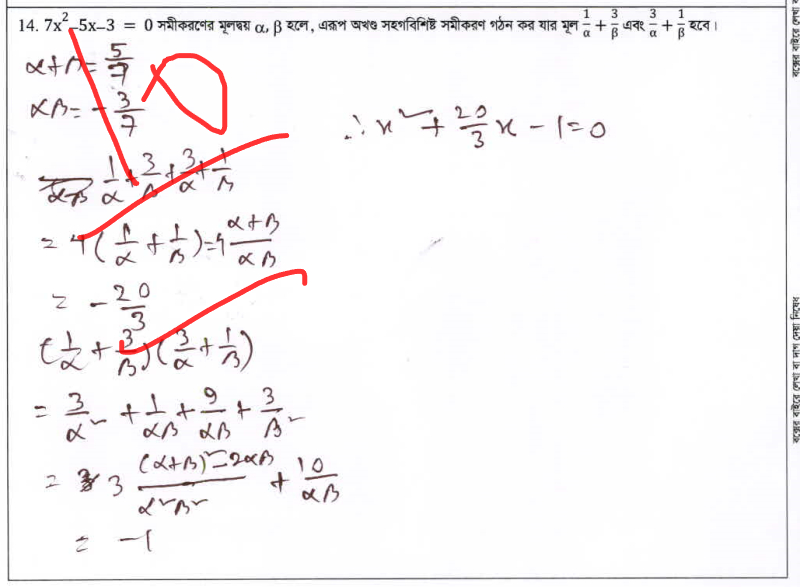 14. 7x²–5x–3 = 0 সমীকরণের মূলদ্বয় α, β হলে, এরূপ অখণ্ড সহগবিশিষ্ট সমীকরণ গঠন কর যার মূল 1/α + 3/β এবং 3/α + 1/β হবে।
α+β = 5/7
αβ = - 3/7
1/α + 3/β + 3/α + 1/β
= 4(1/α + 1/β) = 4 (α+β)/(αβ)
= - 20/3
(1/α + 3/β)(3/α + 1/β)
= 3/α² + 1/αβ + 9/αβ + 3/β²
= 3 ((α+β)² – 2αβ)/(α²β²) + 10/αβ
= -1
∴ x² + 20/3 x - 1 = 0
বক্সের বাইরে লেখা বা দাগ দেয়া নিষেধ
বক্সের বাইরে লেখা ব